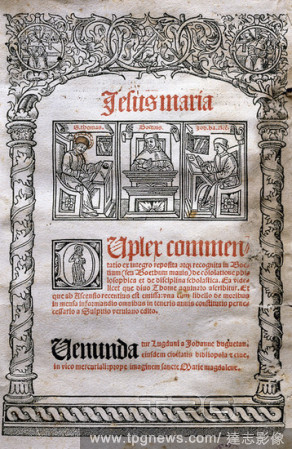 Jesus maria
S. thomas. Boetius. Jo. ba. asc.
Duplex commen-
tario ex integro reposita atq; recognita in Boe-
tium (seu Boethum mavis) de cõsolatione phi-
losophica et de disciplina scholastica. Ea vide-
licet que divo Thome aquinato ascribitur. Et
que ab Ascensio recentius est emissa: una cum libello de moribus
in mensa informandis omnibus in teneris annis constitutis perne-
cessario a Sulpitio verulano edito.
Venunda
tur Lugduni a Johanne huguetan:
eiusdem civitatis bibliopola et cive:
in vico mercuriali: prope imaginem sancte Marie magdalene.
www.tpgnews.com/達志影像